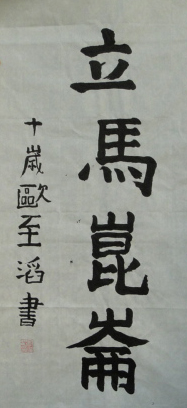 立馬崑崙
十歲歐至滔書